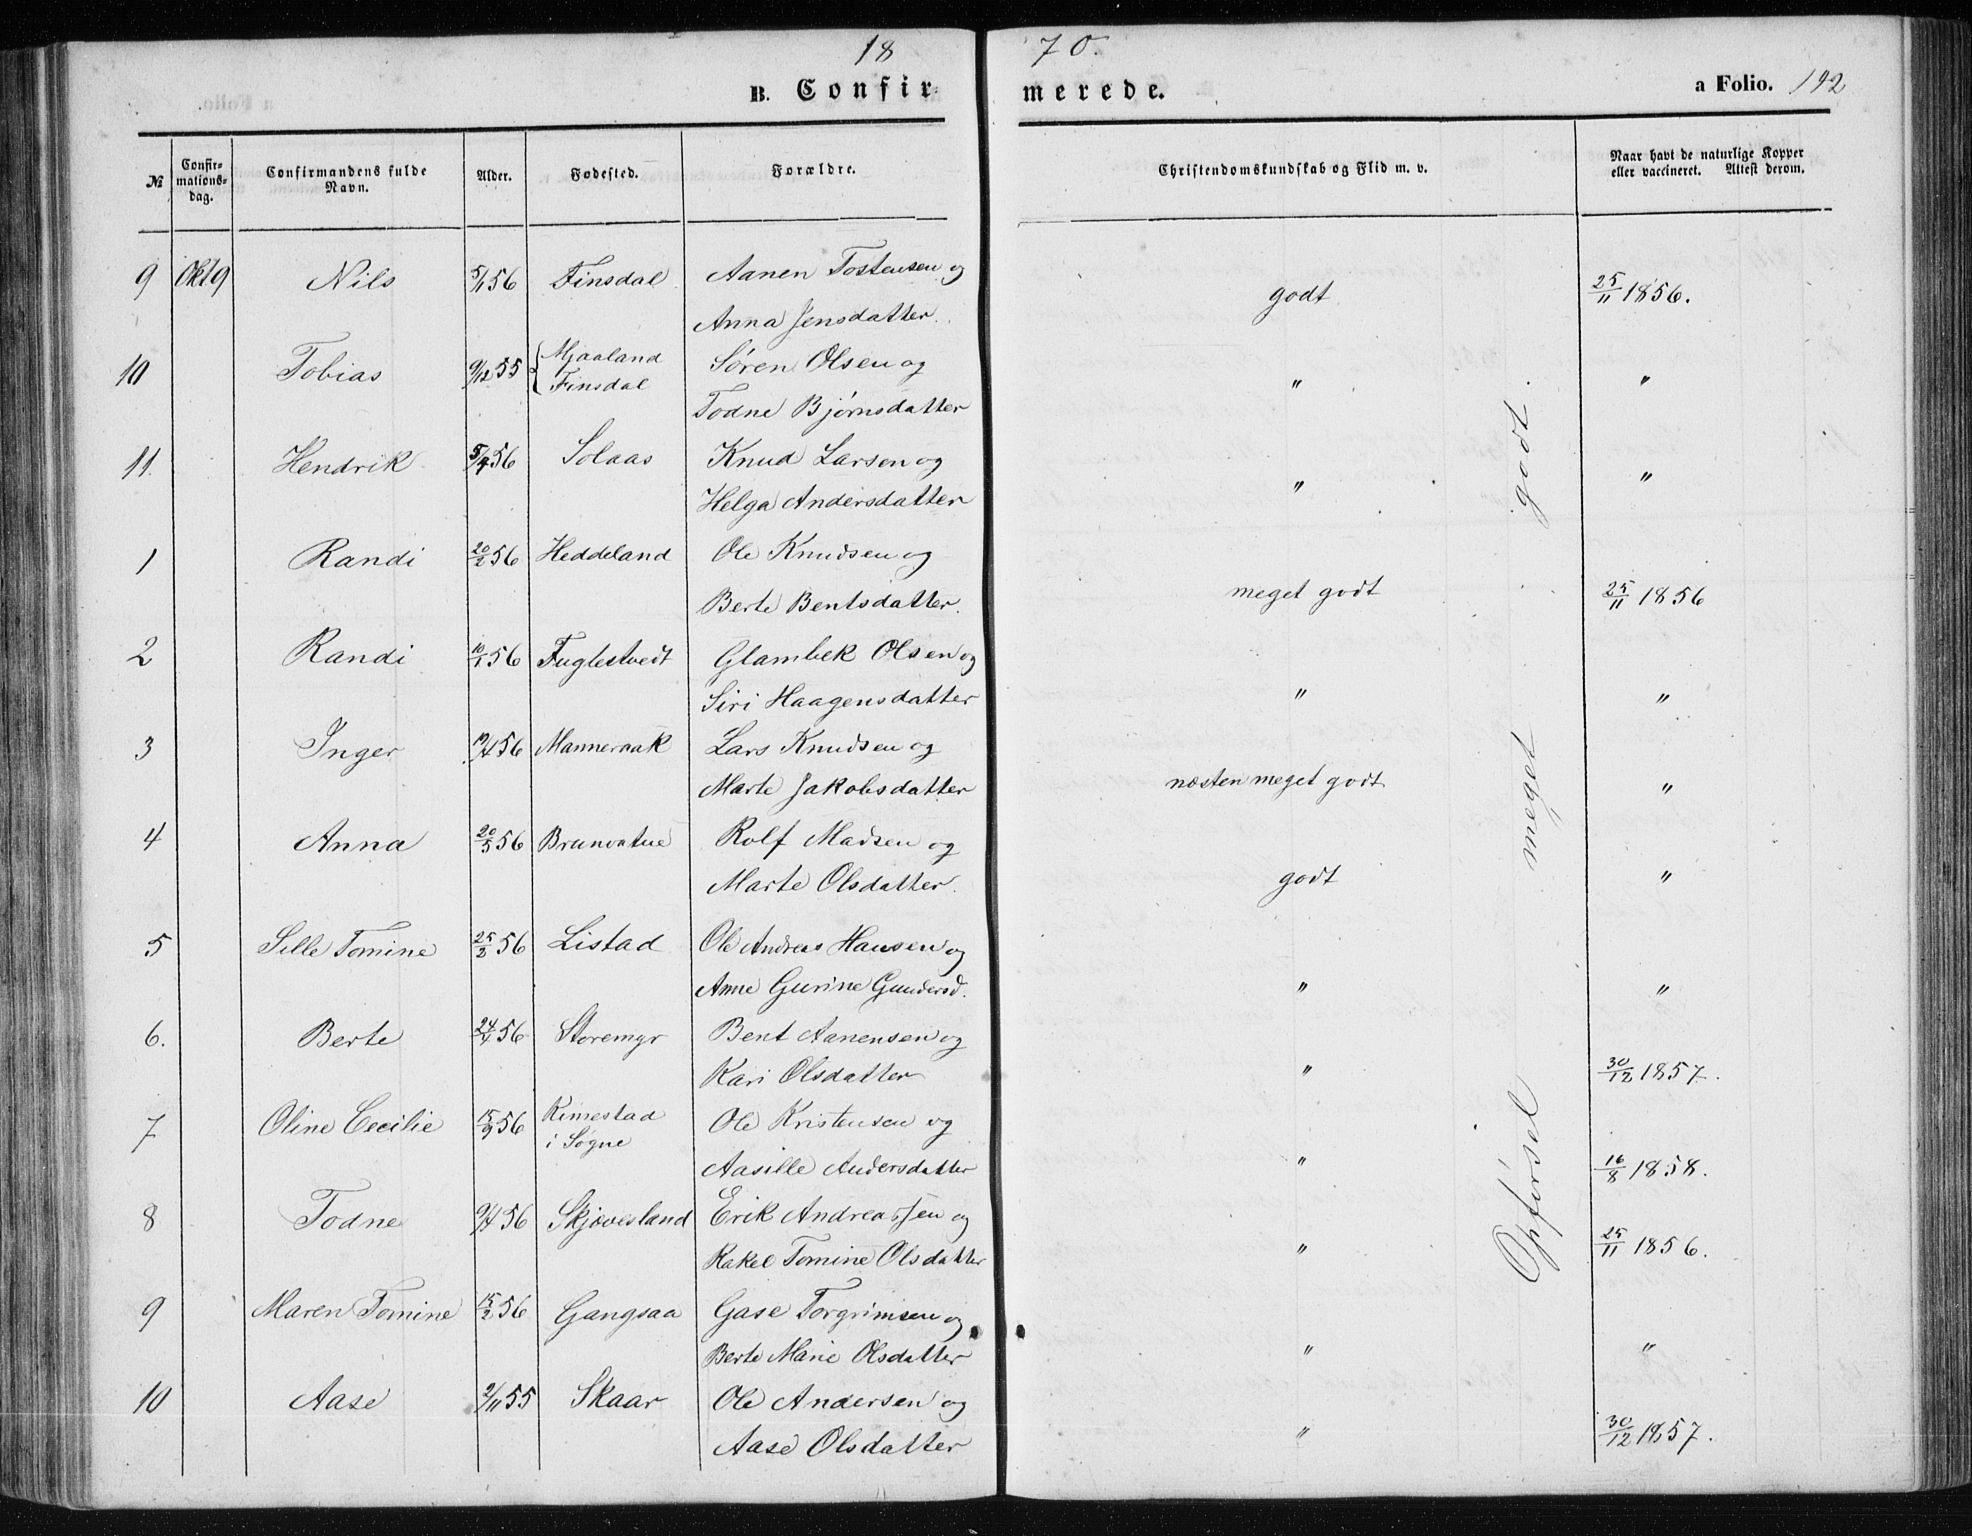 18 70.
B. Confirmerede. a Folio. 192
№ Confirmationsdag. Confirmandens fulde Navn. Alder. Fødested. Forældre. Christendomskundskab og Flid m. v. Naar havt de naturlige Kopper eller vaccineret. Attest derom.
9 Okt 9 Nils 5/1 56 Finsdal Aanen Tostensen og
Anna Jensdatter. godt 25/11 1856.
10 Tobias 9/12 55 Mjaaland Søren Olsen og
Finsdal Todne Bjørnsdatter " "
11. Hendrik 56 Solaas Knud Larsen og
Helga Andersdatter " "
1 Randi 20/2 56 Heddeland Ole Knudsen og
Berte Bentsdatter. meget godt 25/11 1856
2 Randi 10/1 56 Fuglestvedt Glambek Olsen og
Siri Haagensdatter " "
3 Inger 56 Manneraak Lars Knudsen og
Marte Jakobsdatter næsten meget godt "
4 Anna 20/5 56 Brunvatne Rolf Madsen og
Marte Olsdatter. godt "
5 Sille Tomine 25/2 56 Listad Ole Andreas Hansen og
Anne Gurine Gundersd. " "
6. Berte 24/4 56 Storemyr Bent Aanensen og
Kari Olsdatter " 30/12 1857.
7 Oline Cecilie 15/9 56 Rimestad Ole Kristensen og
i Søgne Aasille Andersdatter " 16/8 1858.
8 Todne 9/4 56 Skjævesland Erik Andreassen og
Rakel Tomine Olsdatter " 25/11 1856.
9 Maren Tomine 15/2 56 Gangsaa Gase Torgrimsen og
Berte Marie Olsdatter " "
10 Aase 2/11 55 Skaar Ole Andersen og
Aase Olsdatter " 30/12 1857.
Opførsel meget godt.